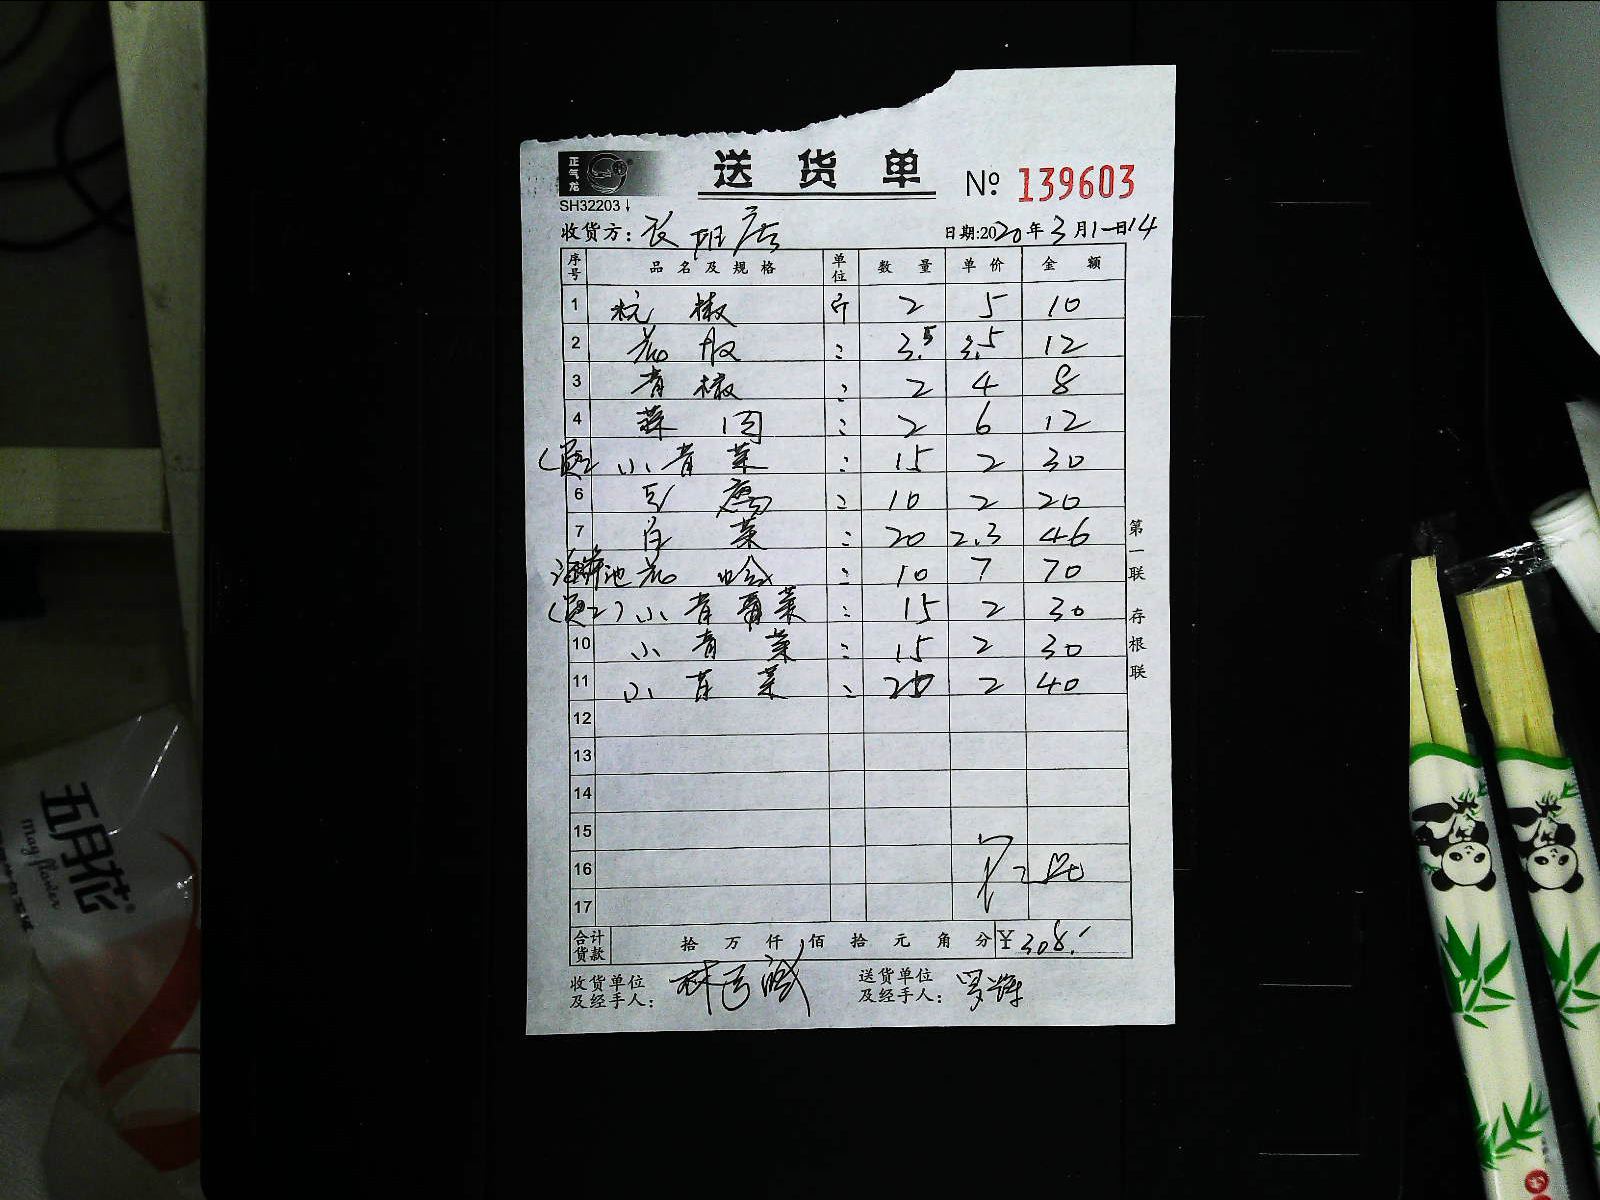 正气龙
送货单 № 139603
SH32203↓
收货方: 日期:2020年3月1一日14
序号 品名及规格 单位 数量 单价 金额
1 杭椒 斤 2 5 10
2 : 3.5 3.5 12
3 青椒 : 2 4 8
4 : 2 6 12
小青菜 : 15 2 30
6 : 10 2 20
7 白菜 : 20 2.3 46
: 10 7 70
小青菜 : 15 2 30
10 小青菜 : 15 2 30
11 小青菜 : 20 2 40
12
13
14
15
16
17
合计货款 拾万仟佰拾元角分 ¥308.
收货单位及经手人: 送货单位及经手人:
第一联 存根联
五月花
May flower